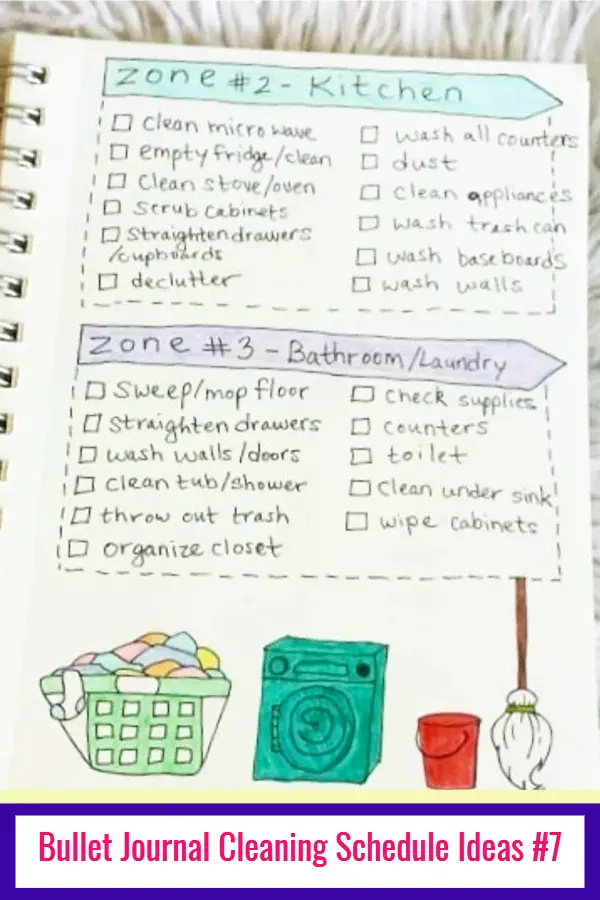 zone #2 - Kitchen
clean microwave
empty fridge/clean
clean stove/oven
scrub cabinets
straighten drawers
/cupboards
declutter
wash all counters
dust
clean appliances
wash trash can
wash baseboards
wash walls
zone #3 - Bathroom/Laundry
sweep/mop floor
straighten drawers
wash walls/doors
clean tub/shower
throw out trash
organize closet
check supplies
counters
toilet
clean under sink
wipe cabinets
Bullet Journal Cleaning Schedule Ideas #7